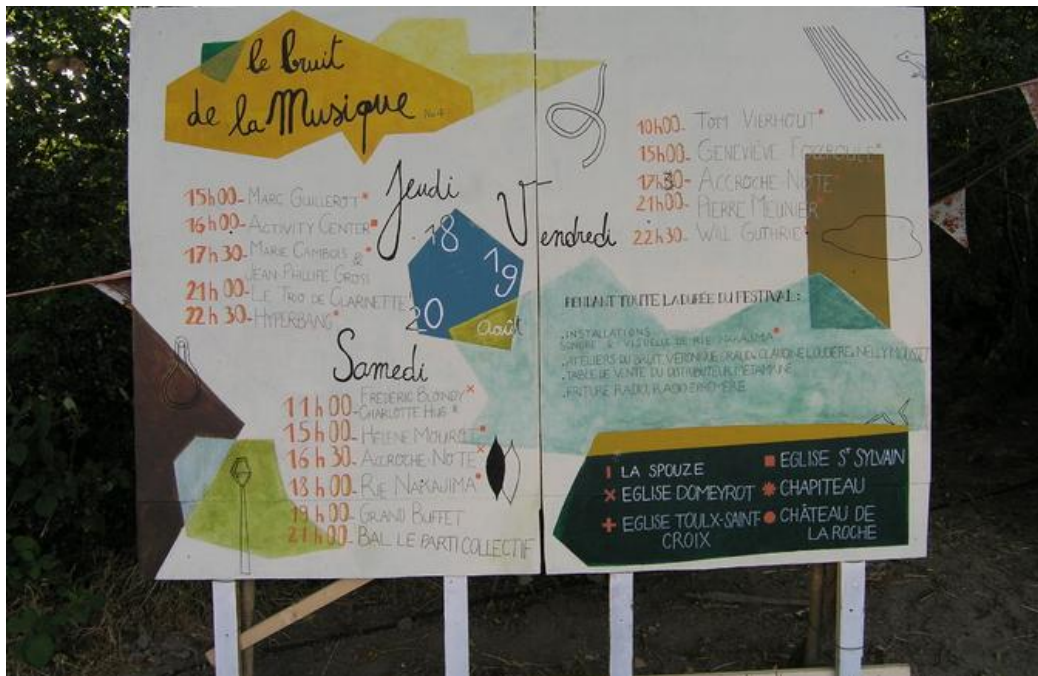 le bruit
de la Musique
Jeudi
18
19
20
Août
15h00- MARC GUILLEROT
16h00- ACTIVITY CENTER
17h30- MARIE CAMBOIS &
JEAN-PHILIPE GROSS
21h00- LE TRIO DE CLARINETTE
22h30- HYPERBANG
Vendredi
10h00- TOM VIERHOUT
15h00- GENEVIÈVE FOCCROULLE
17h30- ACCROCHE-NOTE
21h00- PIERRE MEUNIER
22h30- WILL GUTHRIE
Samedi
11h00- FREDERIC BLONDY
CHARLOTTE HUG
15h00- HELENE MOUROT
16h30- ACCROCHE-NOTE
18h00- RIE NAKAJIMA
19h00- GRAND BUFFET
21h00- BAL LE PARTI COLLECTIF
PENDANT TOUTE LA DURÉE DU FESTIVAL:
.INSTALLATIONS
SONORE & VISUELLE DE RIE NAKAJIMA
.ATELIERS DU BRUIT VERONIQUE CLAUDINE & NELLY
.TABLE DE VENTE DU DISTRIBUTEUR METAMKINE
.FRITURE RADIO, RADIO EPHEMERE
LA SPOUZE
EGLISE DOMEYROT
EGLISE TOULX-SAINT-
CROIX
EGLISE St SYLVAIN
CHAPITEAU
CHÂTEAU DE
LA ROCHE